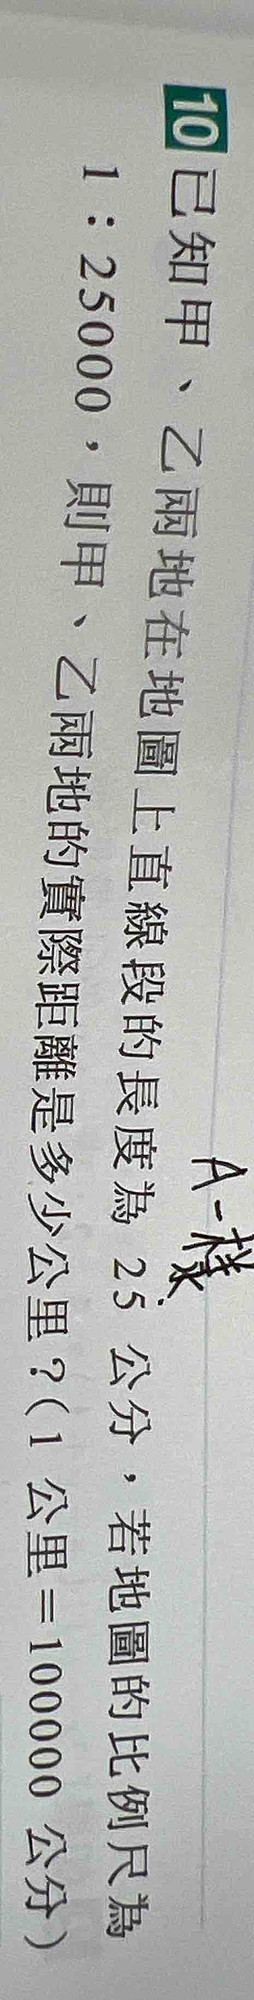 A一樣
10 已知甲、乙兩地在地圖上直線段的長度為 25 公分，若地圖的比例尺為
1：25000，則甲、乙兩地的實際距離是多少公里？(1 公里=100000 公分)